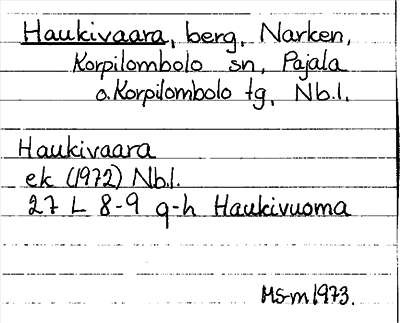 Haukivaara, berg, Narken,
Korpilombolo sn, Pajala
o. Korpilombolo tg, Nb.l.
Haukivaara
ek (1972) Nb.l.
27 L 8-9 g-h Haukivuoma
MS-m 1973.